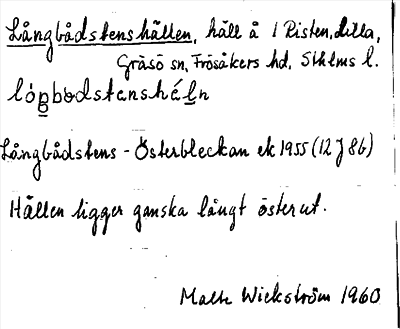 Långbådstenshällen, häll å l Risten, Lilla,
Gräsö sn, Frösåkers hd, Sthlms l.
Långbådstens - Österbleckan ek 1955 (12 J 8b)
Hällen ligger ganska långt österut.
Malte Wickström 1960